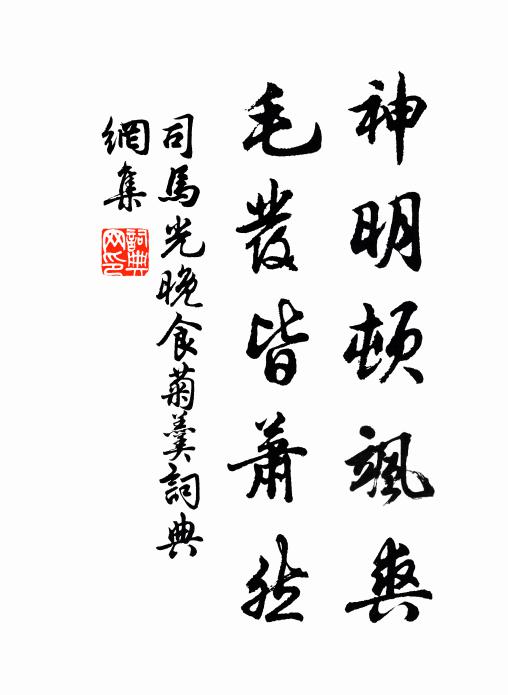 神明頓颯爽
毛發皆蕭然
司馬光晚食菊羹詞典
網集
詞典
网印